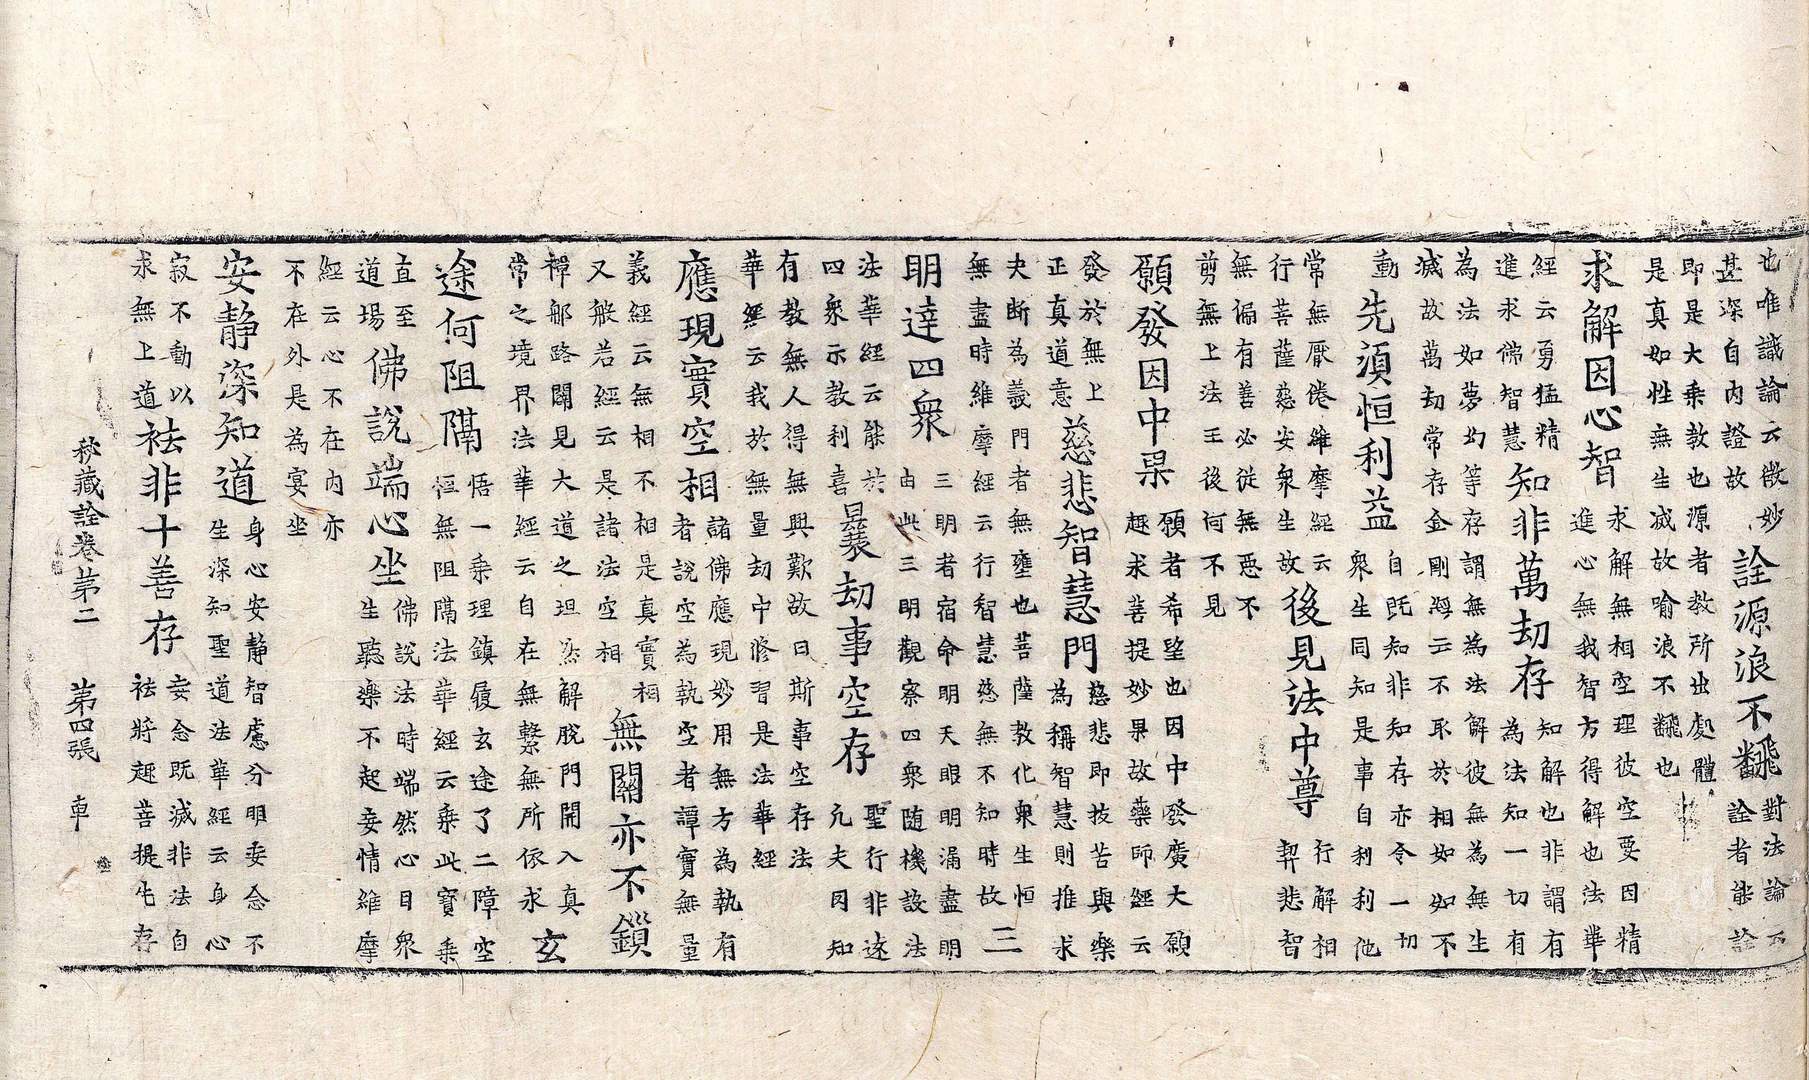 也唯識論云微妙
甚深自内證故
詮源浪不飜
對法論云
詮者能詮
即是大乘教也源者教所出處體
是真如性無生滅故喻浪不飜也
求解因心智
求解無相空理彼空要因精
進心無我智方得解也法華
經云勇猛精
進求佛智慧
知非萬劫存
知解也非謂有
為法知一切有
為法如夢幻等存謂無為法解彼無為無生
滅故萬劫常存金剛海云不取於相如如不
動
先須恒利益
自既知非知存亦令一切
衆生同知是事自利利他
常無厭倦維摩經云
行菩薩慈安衆生故
後見法中尊
行解相
契悲智
無偏有善必從無惡不
剪無上法王後何不見
願發因中果
願者希望也因中發廣大願
趣求菩提妙果故藥師經云
發於無上
正真道意
慈悲智慧門
慈悲即拔苦與樂
為稱智慧則推求
夫断為義門者無壅也菩薩教化衆生恒
無盡時維摩經云行智慧慈無不知時故
三
明達四衆
三明者宿命明天眼明漏盡明
由此三明觀察四衆随機設法
法華經云能於
四衆示教利喜
曩劫事空存
聖行非遠
凡夫罔知
有教無人得無興歎故曰斯事空存法
華經云我於無量劫中修習是法華經
應現實空相
諸佛應現妙用無方為執有
者說空為執空者譚實無量
義經云無相不相是真實相
又般若經云是諸法空相
無關亦不鎖
禪郍路闢見大道之坦然解脫門開入真
常之境界法華經云自在無繫無所依求
玄
途何阻隔
悟一乘理鎮履玄途了二障空
恒無阻隔法華經云乘此寶乘
直至
道場
佛說端心坐
佛說法時端然心目衆
生聽樂不起妄情維摩
經云心不在内亦
不在外是為宴坐
安静深知道
身心安静智慮分明妄念不
生深知聖道法華經云身心
寂不動以
求無上道
祛非十善存
妄念既滅非法自
祛將趣菩提先存
秘藏詮卷第二 第四張 車